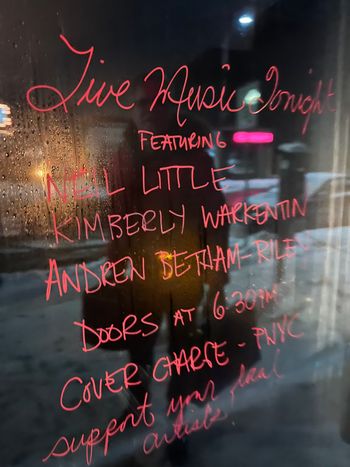 Live Music Tonight
FEATURING
NEIL LITTLE
KIMBERLY WARKENTIN
ANDREW BETHAM-RILEY
DOORS AT 6:30PM
COVER CHARGE - PWYC
support your local
artists!